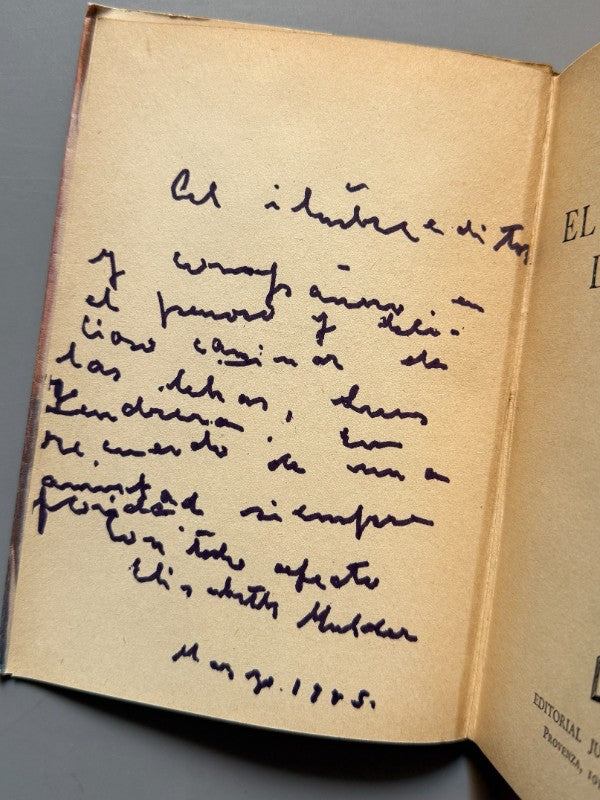 Al ilustre editor
y compañero en
el penoso y deli-
cioso caminar de
las letras, 
Zendrera. Con
recuerdo de una
amistad siempre
florida.
Con todo afecto
Elisabeth Mulder
Marzo. 1945.
EL
EDITORIAL JU
PROVENZA, 101